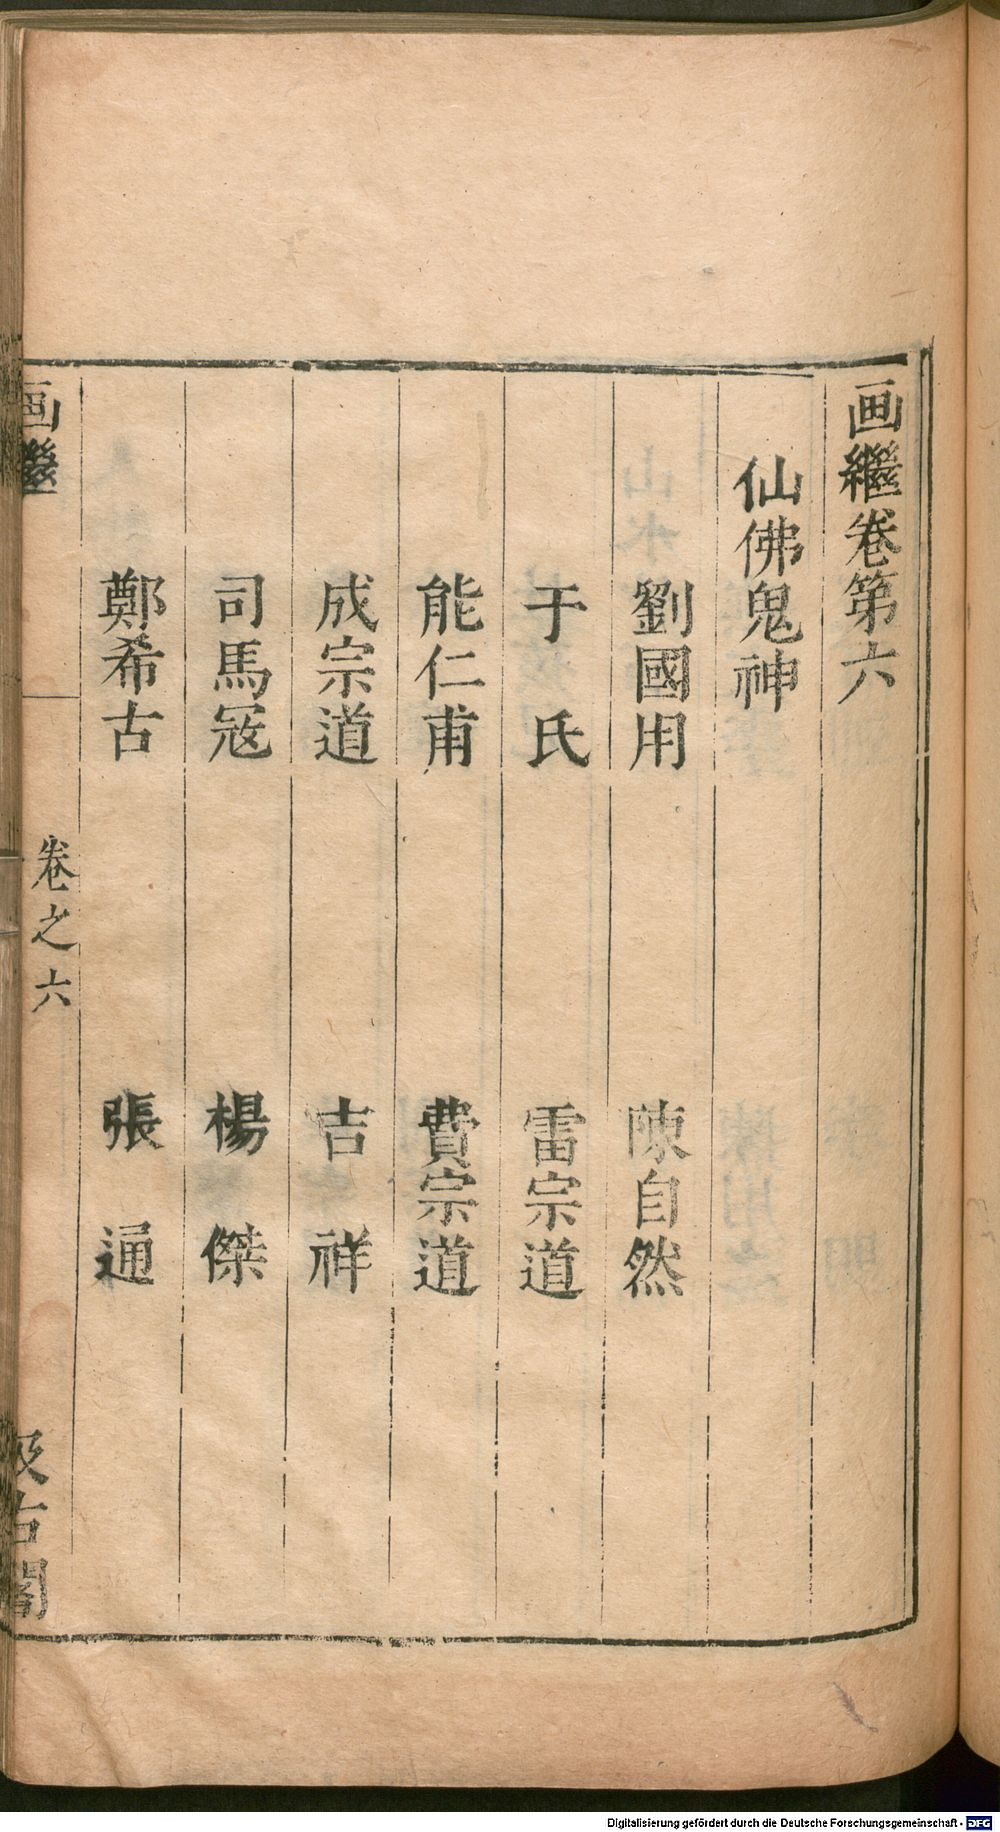 画繼卷第六
仙佛鬼神
劉國用　陳自然
于　氏　雷宗道
能仁甫　費宗道
成宗道　吉　祥
司馬冦　楊　傑
鄭希古　張　通
画繼　卷之六　汲古閣
Digitalisierung gefördert durch die Deutsche Forschungsgemeinschaft - DFG